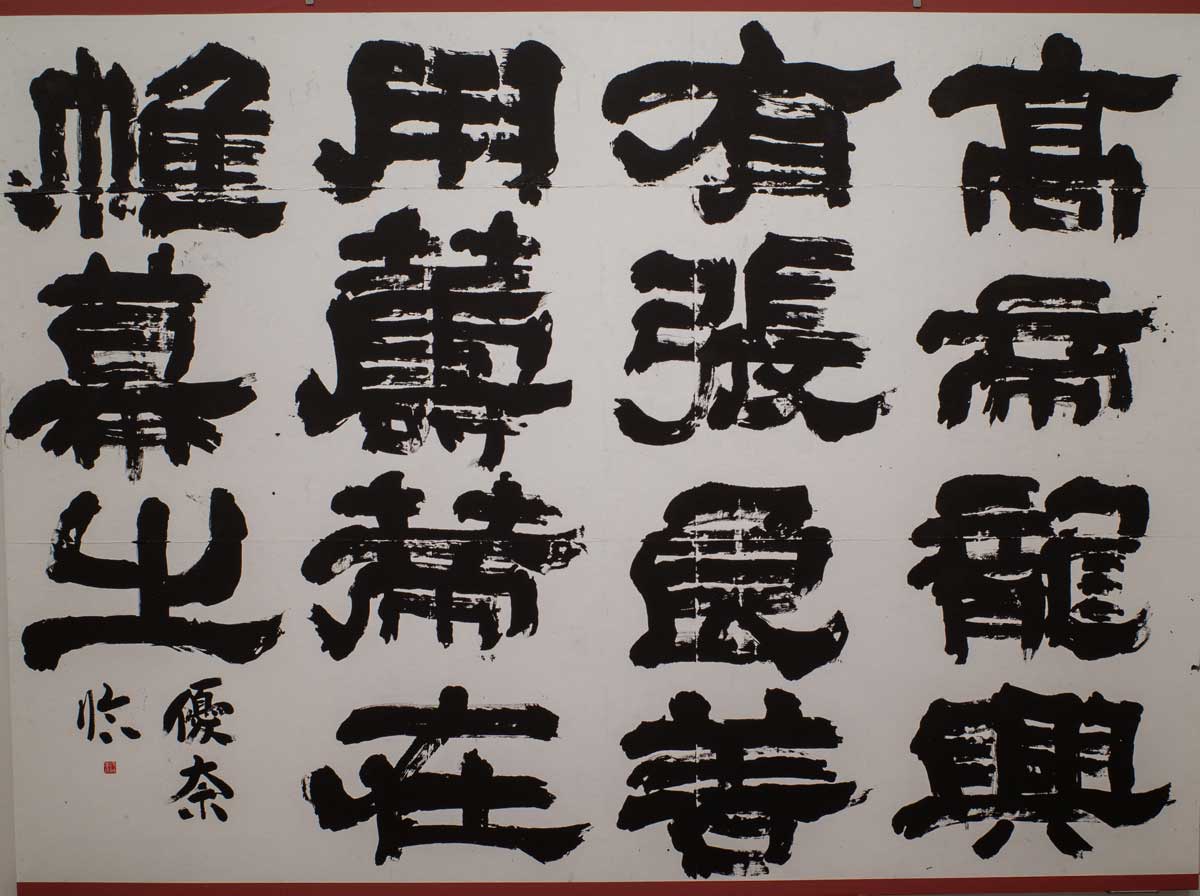 高帝龍興
有張良善
用籌策在
帷幕之
優奈
臨